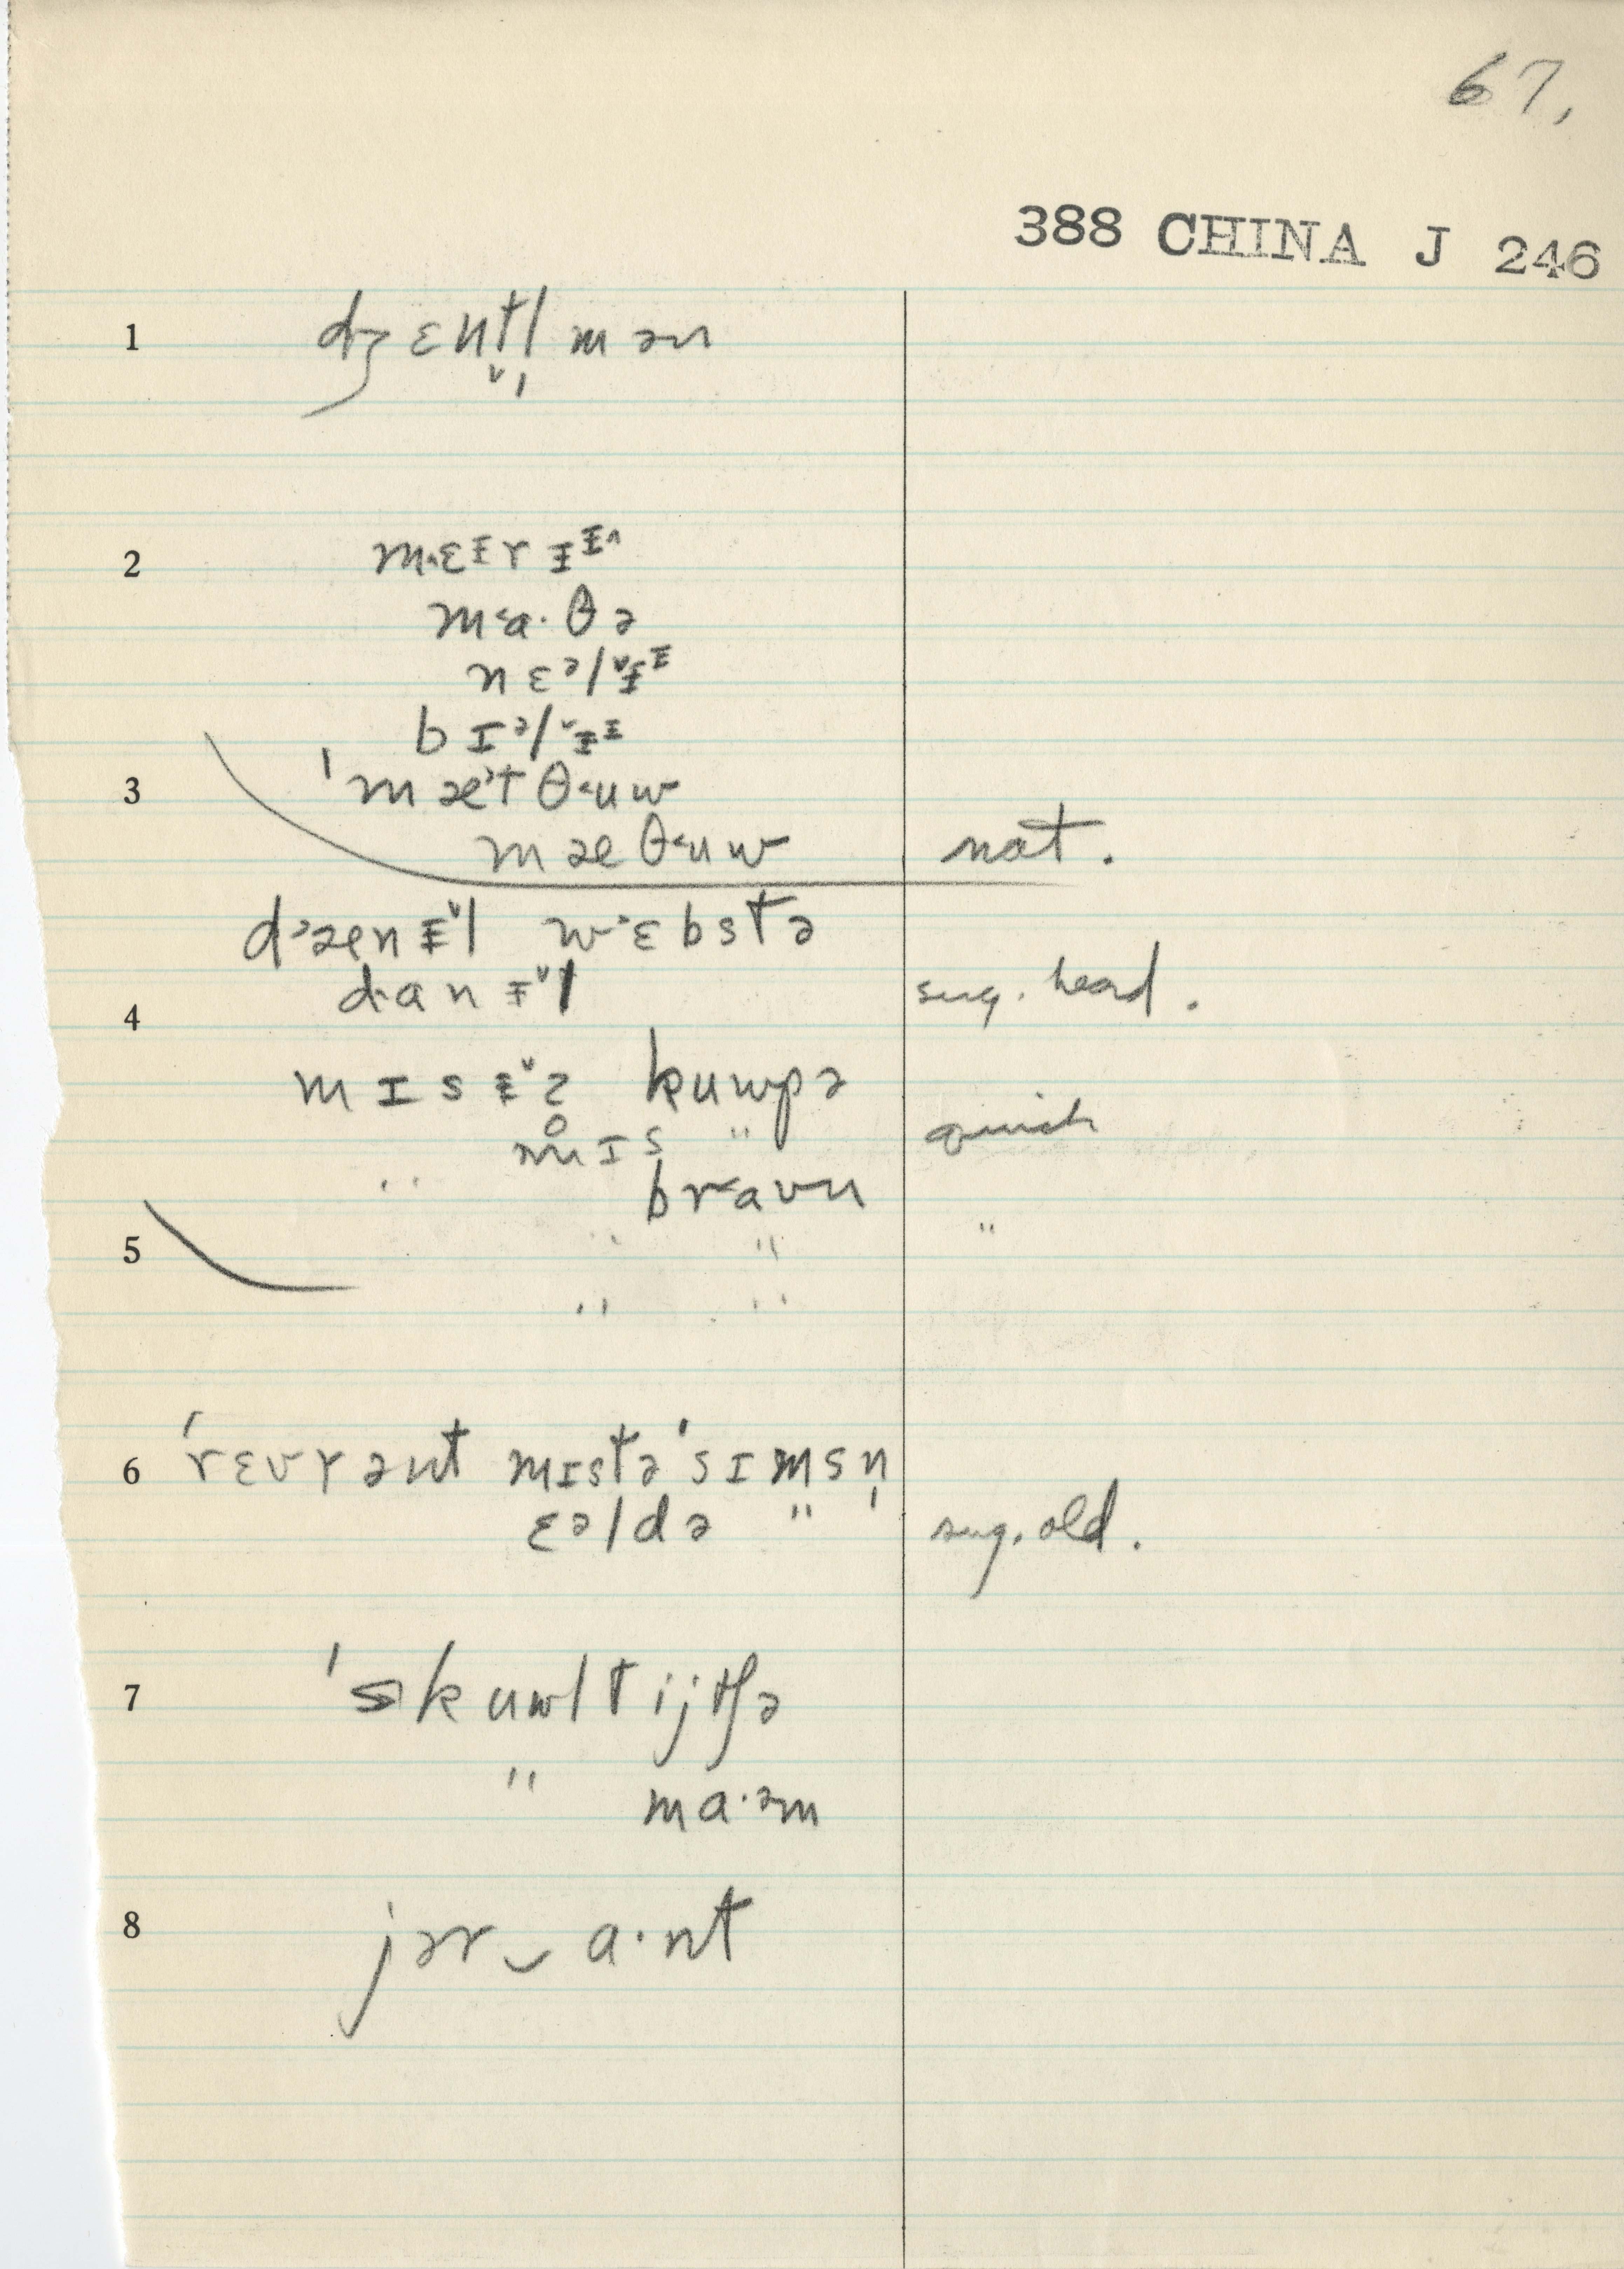 67,
388 CHINA J 246
1 dʒɛnt̬l̩mən
2 m˄ɛᵻrᵻᵻ˄
m˂a·θə
nɛᵊl˅ᵻᵻ
bɪᵊl˅ᵻᵻ
3 'mæ˃tθ˂uw
mæθ˂uw nat.
d˃ænᵻ˅l w˃ɛbstə
4 d·anᵻ˅l sug. heard.
mɪsᵻ˅z kuwpə
" mɪs " quick
br˂aʊn
5 " " "
" "
6 'rɛvrənt mɪstə'sɪmsn̩
ɛəldə " sug. old.
7 'skuwltijtʃə
" ma·əm
8 jər‿a·nt